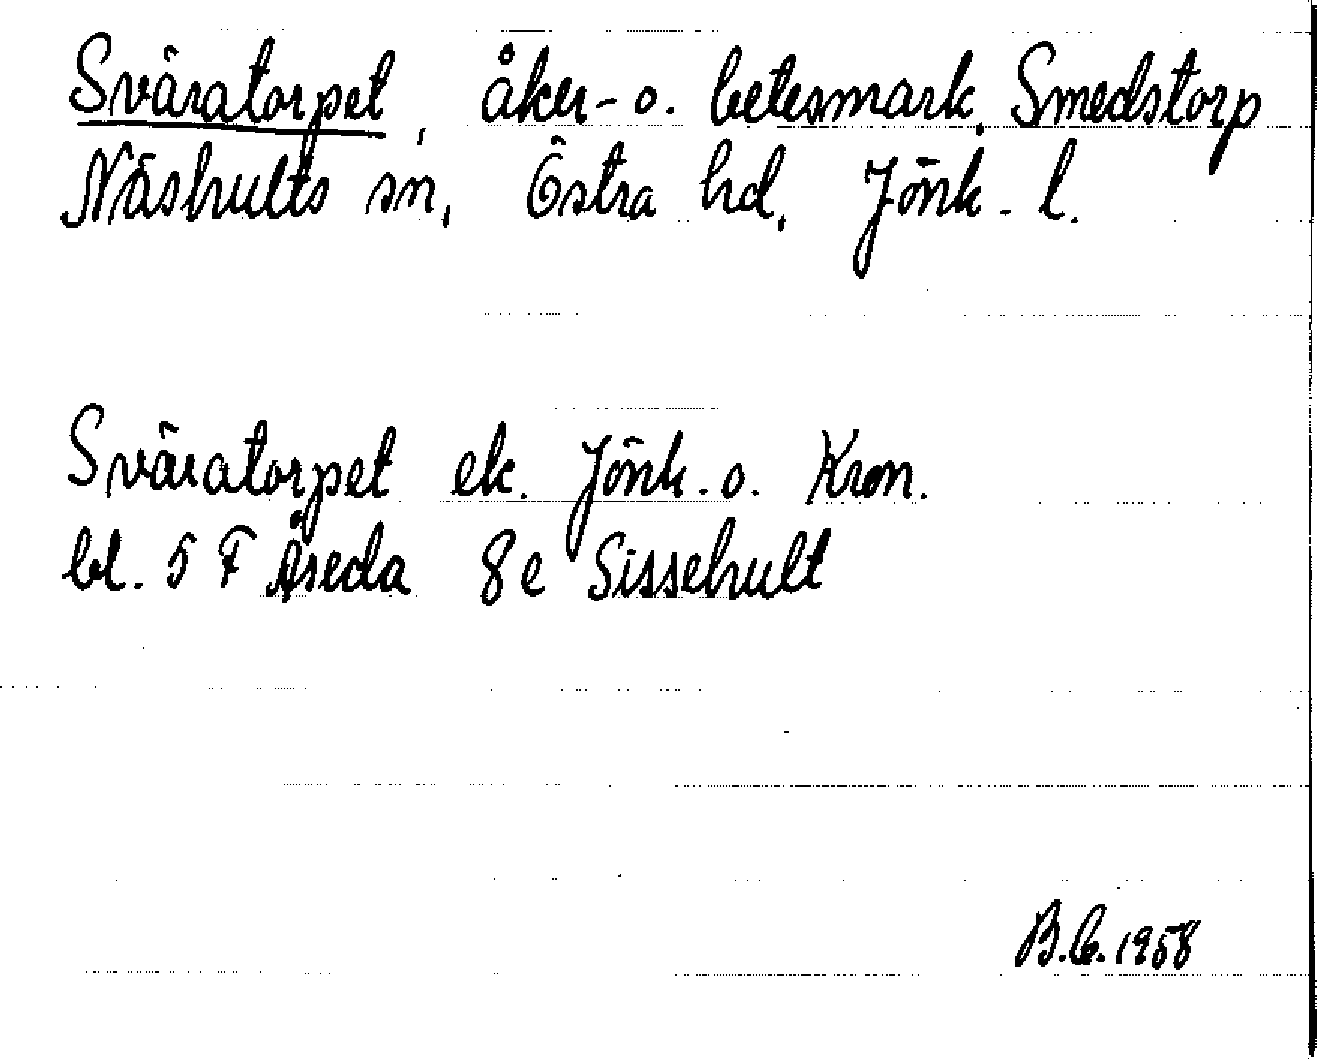 Sväratorpet, åker- o. betesmark, Smedstorp
Näshults sn, Östra hd, Jönk. l.
Sväratorpet ek. Jönk. o. Kron.
bl. 5 F Åseda 8e Sissehult
B.G. 1958